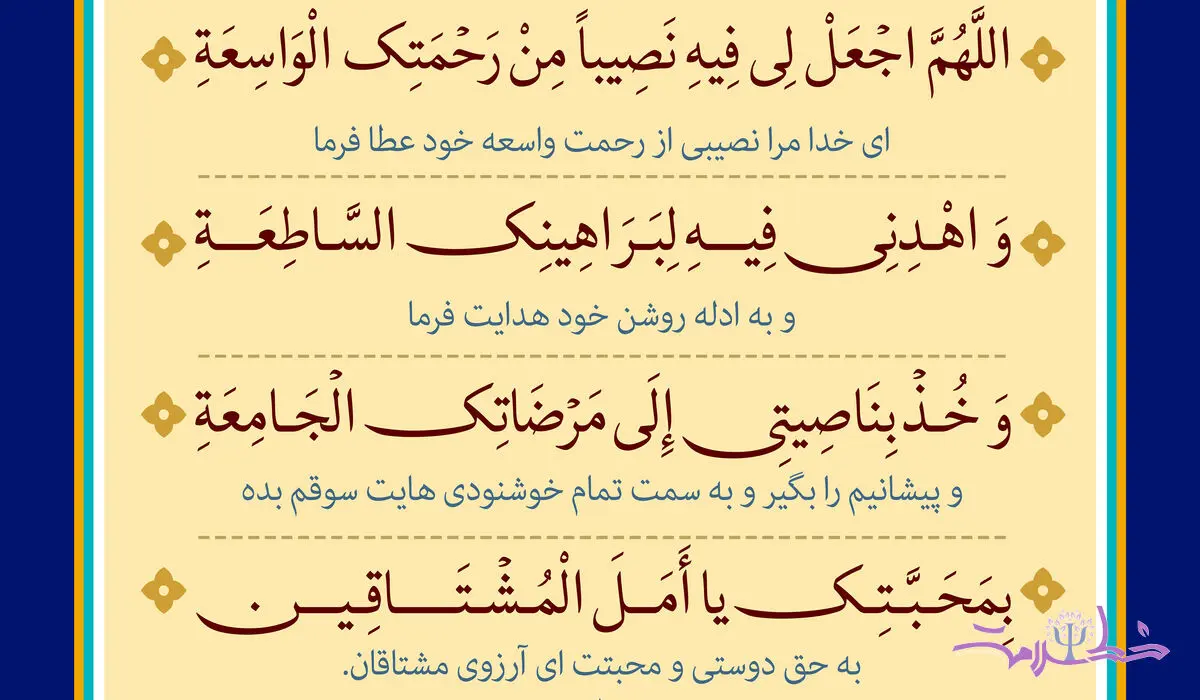 اللَّهُمَّ اجْعَلْ لِی فِیهِ نَصِیباً مِنْ رَحْمَتِکَ الْوَاسِعَةِ
ای خدا مرا نصیبی از رحمت واسعه خود عطا فرما
وَ اهْدِنِی فِیهِ لِبَرَاهِینِکَ السَّاطِعَةِ
و به ادله روشن خود هدایت فرما
وَ خُذْ بِنَاصِیَتِی إِلَی مَرْضَاتِکَ الْجَامِعَةِ
و پیشانیم را بگیر و به سمت تمام خوشنودی هایت سوقم بده
بِمَحَبَّتِکَ یا أَمَلَ الْمُشْتَاقِینَ.
به حق دوستی و محبتت ای آرزوی مشتاقان.
خط سلامت